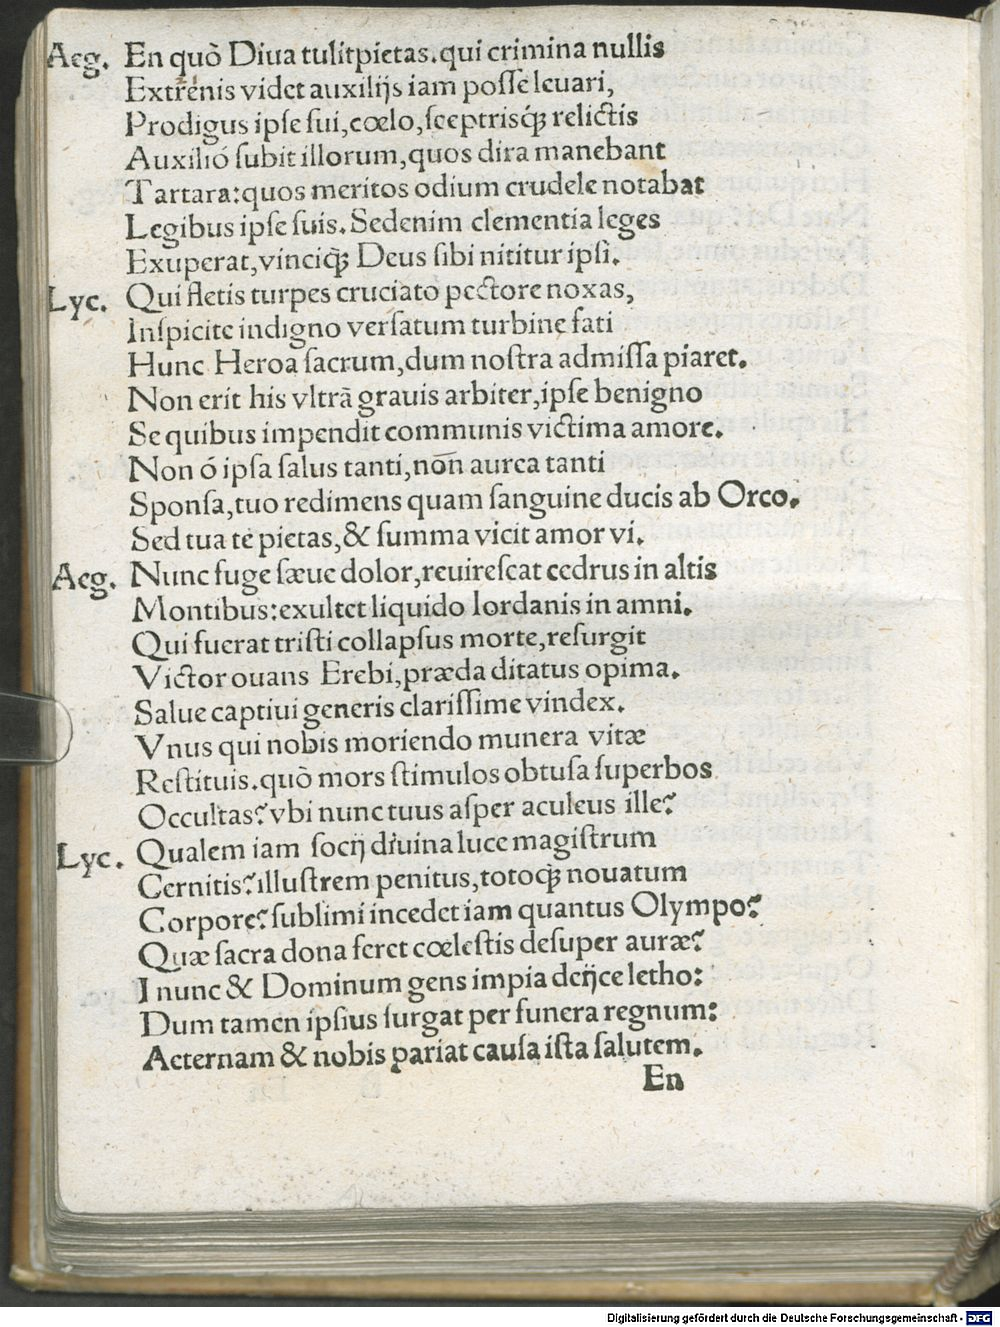 Aeg. En quò Diua tulit pietas. qui crimina nullis
Extremis videt auxilijs iam posse leuari,
Prodigus ipse sui, cœlo, sceptrisq́ꝫ relictis
Auxilió subit illorum, quos dira manebant
Tartara: quos meritos odium crudele notabat
Legibus ipse suis. Sed enim clementia leges
Exuperat, vinciq́ꝫ Deus sibi nititur ipsi.
Lyc. Qui fletis turpes cruciato pectore noxas,
Inspicite indigno versatum turbine fati
Hunc Heroa sacrum, dum nostra admissa piaret.
Non erit his vltrā grauis arbiter, ipse benigno
Se quibus impendit communis victima amore.
Non ó ipsa salus tanti, non̄ aurea tanti
Sponsa, tuo redimens quam sanguine ducis ab Orco.
Sed tua te pietas, & summa vicit amor vi.
Aeg. Nunc fuge sæue dolor, reuirescat cedrus in altis
Montibus: exultet liquido Iordanis in amni.
Qui fuerat tristi collapsus morte, resurgit
Victor ouans Erebi, præda ditatus opima.
Salue captiui generis clarissime vindex.
Vnus qui nobis moriendo munera vitæ
Restituis. quò mors stimulos obtusa superbos
Occultas? vbi nunc tuus asper aculeus ille?
Lyc. Qualem iam socij diuina luce magistrum
Cernitis? illustrem penitus, totoq́ꝫ nouatum
Corpore? sublimi incedet iam quantus Olympo?
Quæ sacra dona feret cœlestis desuper auræ?
I nunc & Dominum gens impia deijce letho:
Dum tamen ipsius surgat per funera regnum:
Aeternam & nobis pariat causa ista salutem.
En
Digitalisierung gefördert durch die Deutsche Forschungsgemeinschaft - DFG